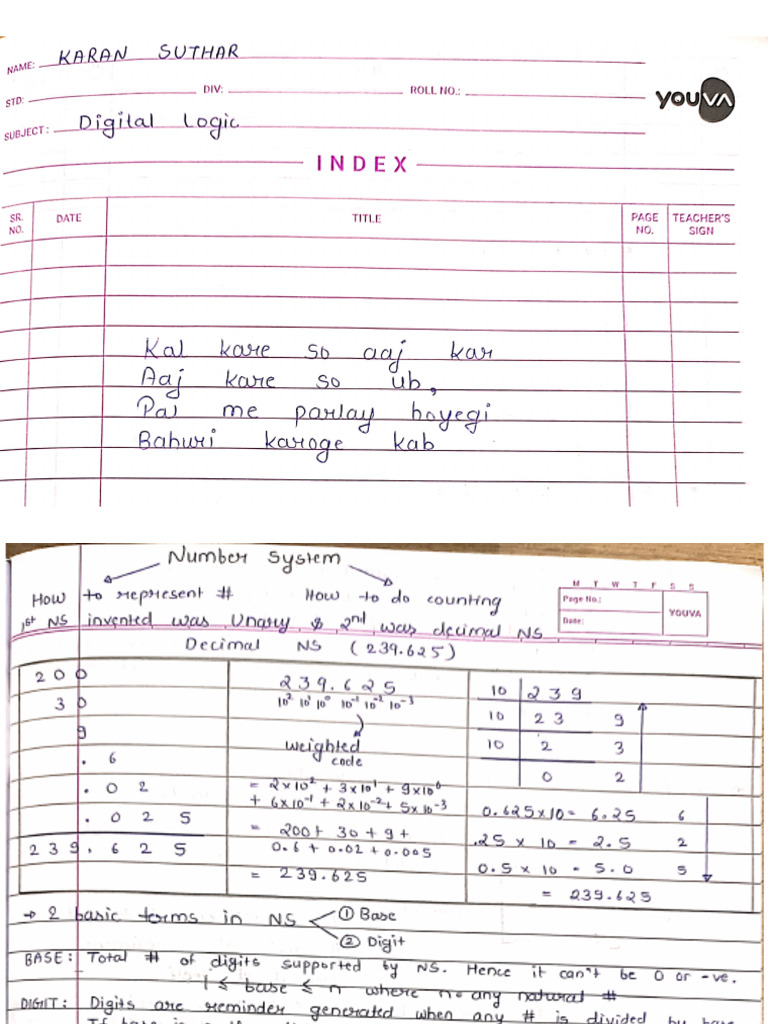 NAME: KARAN SUTHAR
STD: DIV: ROLL NO.:
YOUVA
SUBJECT: Digital Logic
INDEX
SR. NO. DATE TITLE PAGE NO. TEACHER'S SIGN
Kal kare so aaj kar
Aaj kare so ub,
Pal me parlay hoyegi
Bahuri karoge kab
Number System
M T W T F S S
Page No.:
YOUVA
Date:
How to represent # How to do counting
1st NS invented was Unary, & 2nd was decimal NS
Decimal NS (239.625)
200
30
9
.6
.02
.025
239.625
239.625
10² 10¹ 10⁰ 10⁻¹ 10⁻² 10⁻³
weighted
code
= 2×10² + 3×10¹ + 9×10⁰
+ 6×10⁻¹ + 2×10⁻² + 5×10⁻³
= 200+ 30 + 9 +
0.6 + 0.02 + 0.005
= 239.625
10 239
10 23 9
10 2 3
0 2
0.625×10= 6.25 6
.25 × 10 = 2.5 2
0.5 × 10 = 5.0 5
= 239.625
→ 2 basic terms in NS
① Base
② Digit
BASE: Total # of digits supported by NS. Hence it can't be 0 or -ve.
1 ≤ base ≤ n where n any natural #
DIGIT: Digits are reminder generated when any # is divided by base
If base is